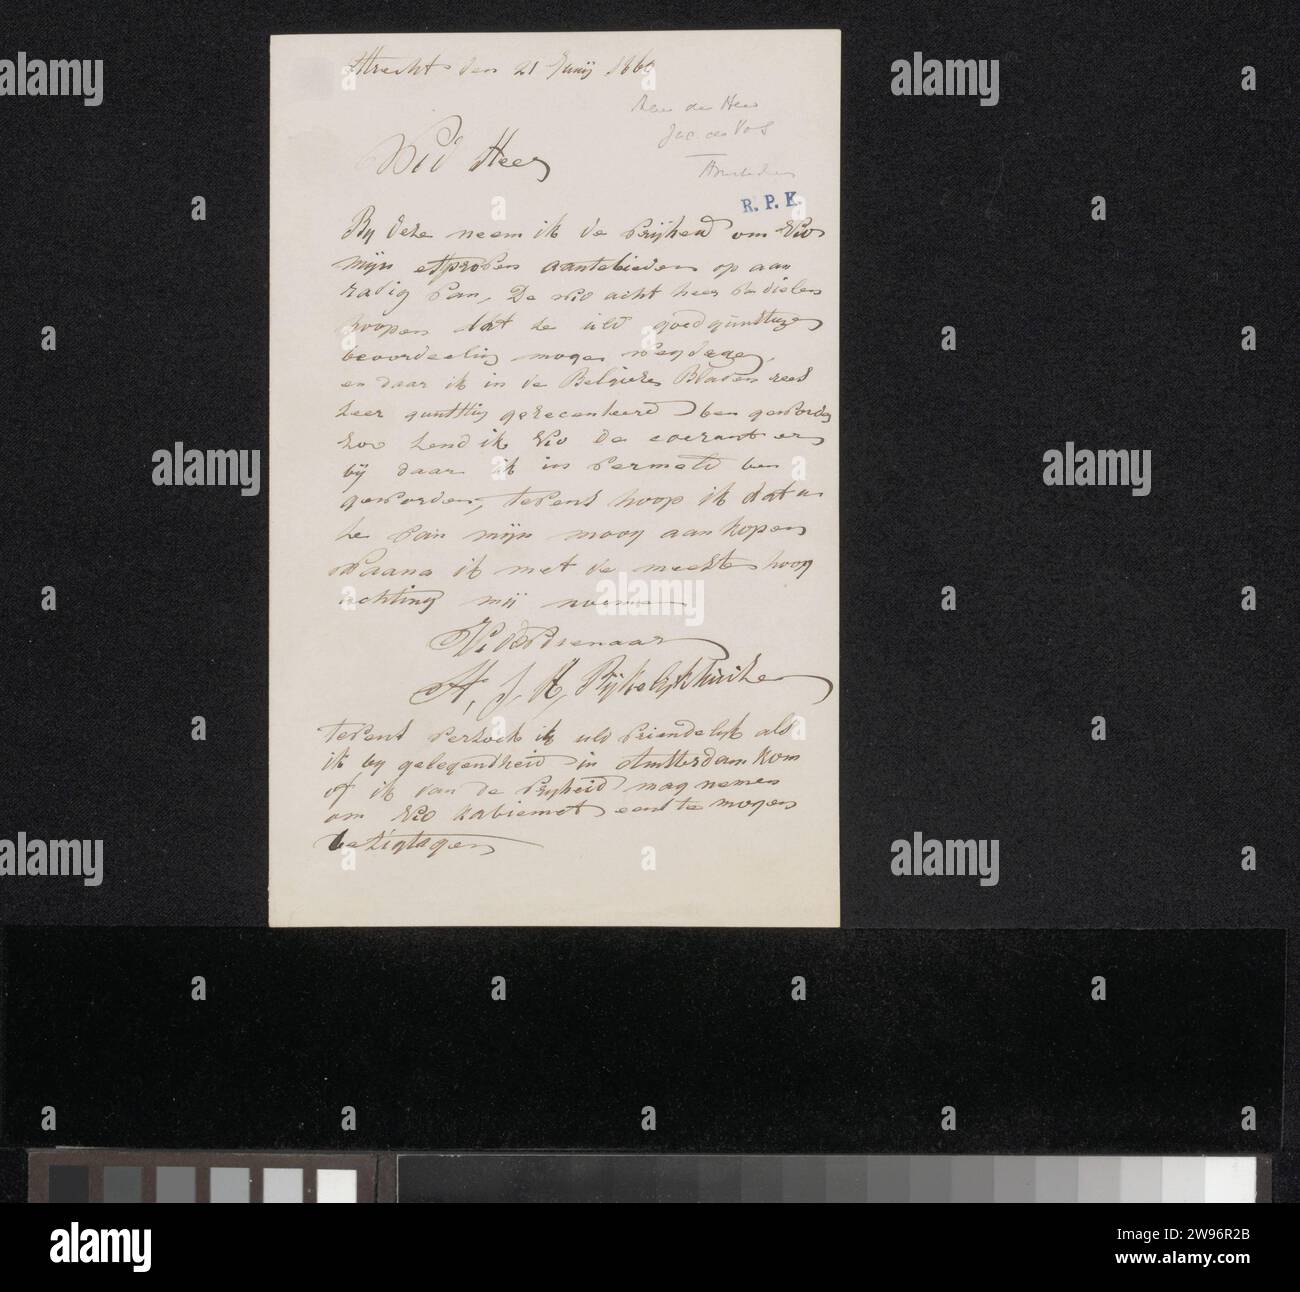 Utrecht den 21 Junij 1860
Aan de Heer
Jac. de Vos
Amsterdam
WEd Heer
R. P. K.
By deze neem ik de vrijheid om UEd
mijn aantebieden op aan
radig van, De acht heer
hoopen dat de uw goedgunstige
beoordeeling mogen wegdragen,
en daar ik in de Belgische Bladen reeds
zeer gunstig gerecenseerd ben geworden
zoo zend ik UEd de courant er
bij daar ik in vermeld ben
geworden, tevens hoop ik dat u
ze van mijn moog aankopen
Waarna ik met de meeste hoog
achting mij noeme
UEd Dienaar
H. J. H. Rijkelijkhuizen
tevens verzoek ik uEd vriendelijk als
ik bij gelegendheid in Amsterdam kom
of ik dan de vrijheid mag nemen
om UEd kabienet eens te mogen
bezigtigen
alamy
a
Image ID: 2W96R2B
www.alamy.com